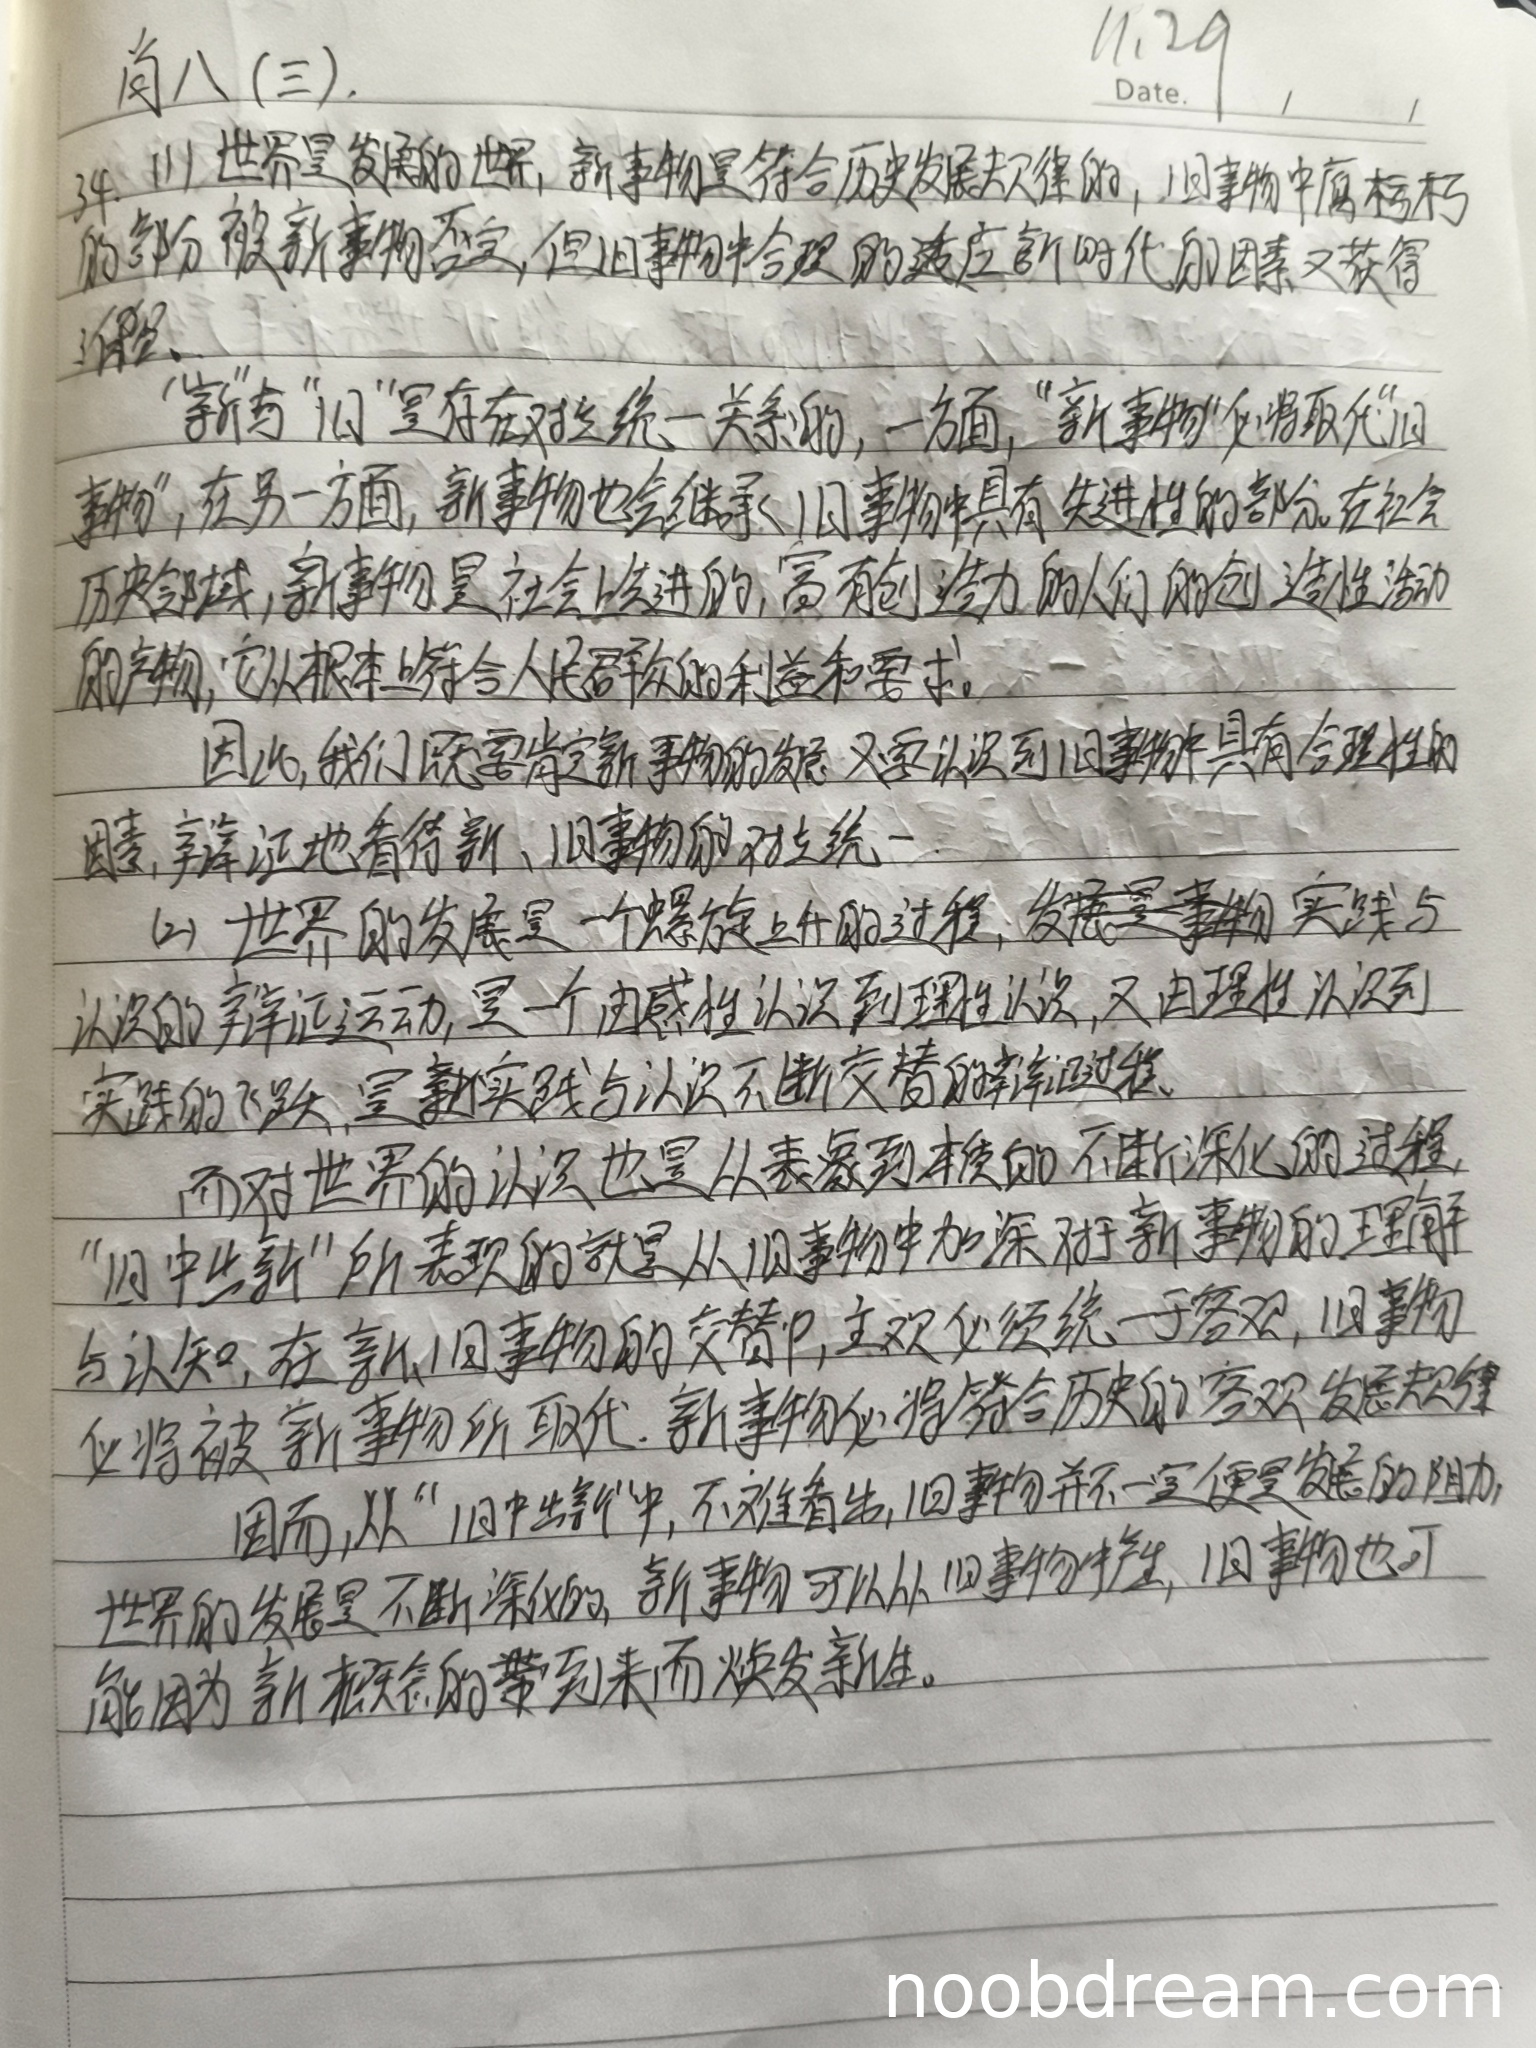 肖八(三).
11.29
Date. / /
34. (1) 世界是发展的世界,新事物是符合历史发展规律的,旧事物中腐朽
的部分被新事物否定,但旧事物中合理的适应新时代的因素又获得
"新"与"旧"是存在对立统一关系的,一方面,"新事物"必将取代"旧
事物",在另一方面,新事物也会继承旧事物中具有先进性的部分。在社会
历史领域,新事物是社会上先进的,富有创造力的人们的创造性活动
的产物,它从根本上符合人民群众的利益和要求。
因此,我们既要肯定新事物的发展又要认识到旧事物中具有合理性的
因素,辩证地看待新、旧事物的对立统一.
(2) 世界的发展是一个螺旋上升的过程,发展是事物实践与
认识的辩证运动,是一个由感性认识到理性认识,又由理性认识到
实践的飞跃,是实践与认识不断交替的辩证过程。
而对世界的认识也是从表象到本质的不断深化的过程,
"旧中出新"所表现的就是从旧事物中加深对于新事物的理解
与认知,在新、旧事物的交替中,主观必须统一于客观,旧事物
必将被新事物所取代.新事物必将符合历史的客观发展规律
因而,从"旧中出新"中,不难看出,旧事物并不一定便是发展的阻力,
世界的发展是不断深化的,新事物可以从旧事物中产生,旧事物也可
能因为新概念的带到来而焕发新生。
noobdream.com